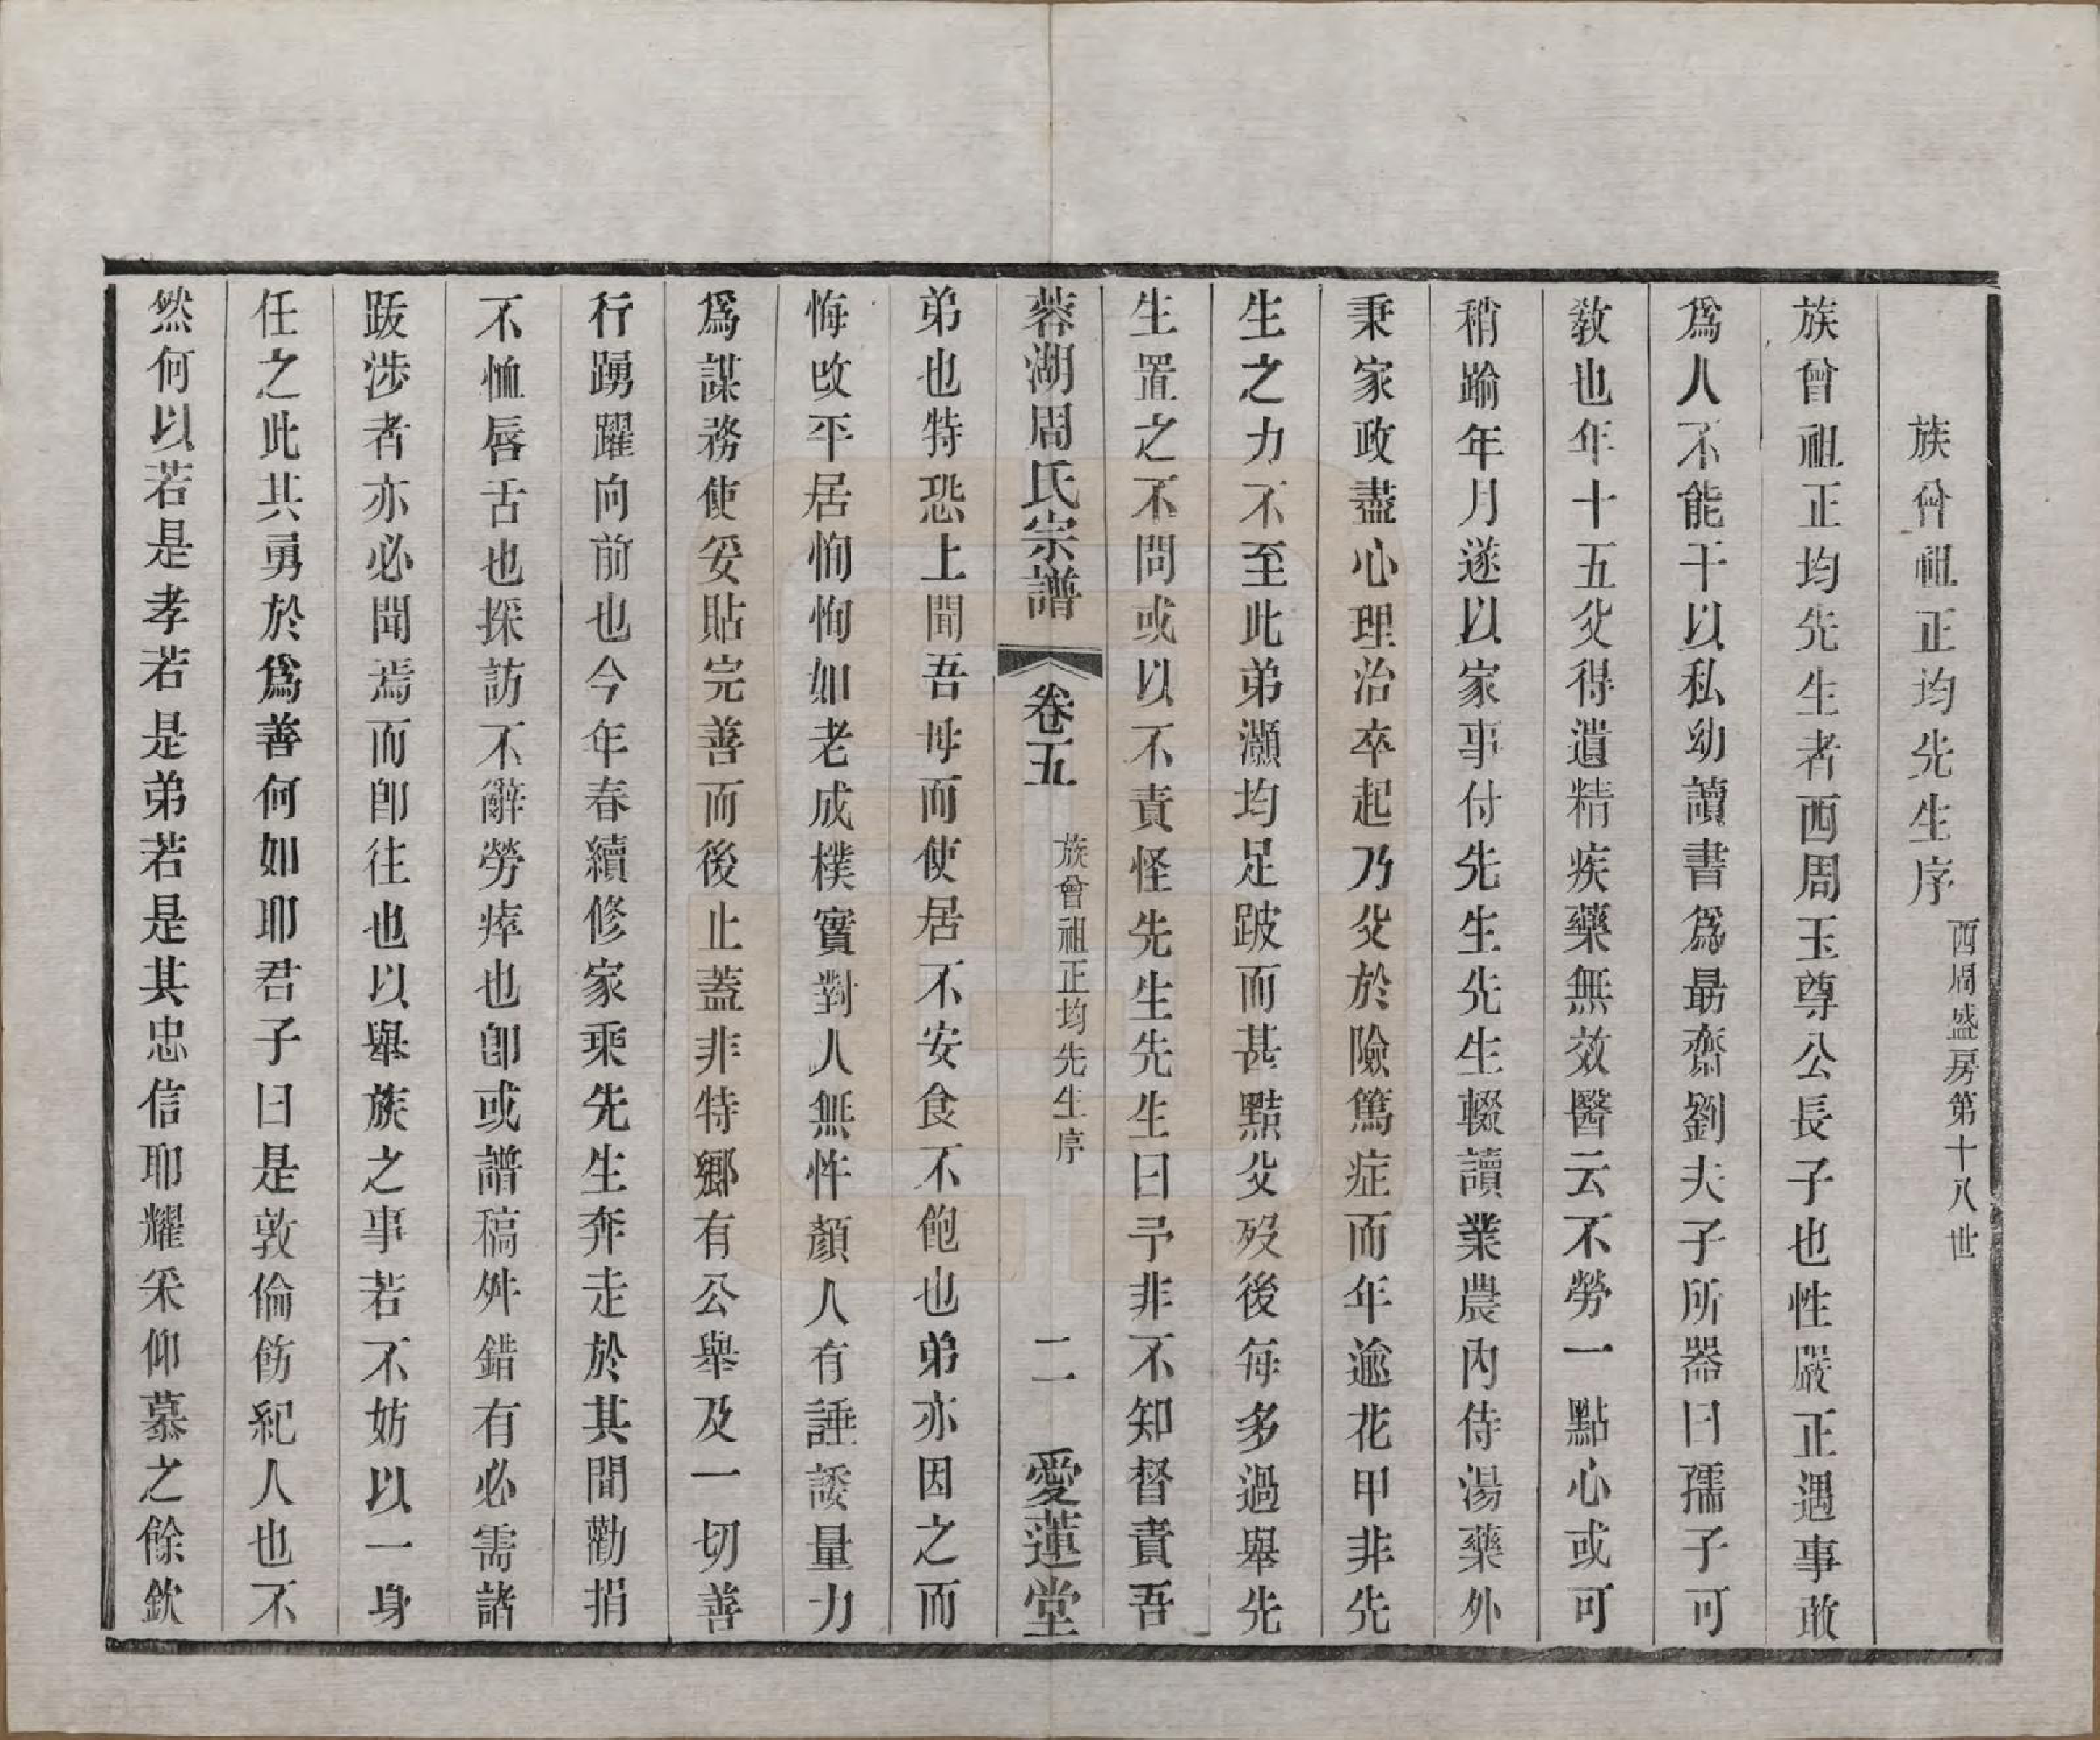 族曾祖正均先生序 西周盛房第十八世
族曾祖正均先生者西周玉尊公長子也性嚴正遇事敢
爲人不能干以私幼讀書爲勗齋劉夫子所器曰孺子可
教也年十五父得遺精疾藥無效醫云不勞一點心或可
稍踰年月遂以家事付先生先生輟讀業農內侍湯藥外
秉家政盡心理治卒起乃父於險篤症而年逾花甲非先
生之力不至此弟灝均足跛而甚黠父歿後每多過舉先
生置之不問或以不責怪先生先生曰予非不知督責吾
蓉湖周氏宗譜 卷五 族曾祖正均先生序 二 愛蓮堂
弟也特恐上間吾母而使居不安食不飽也弟亦因之而
悔改平居恂恂如老成樸實對人無忤顏人有諈諉量力
爲謀務使妥貼完善而後止蓋非特鄉有公舉及一切善
行踴躍向前也今年春續修家乘先生奔走於其間勸捐
不恤唇舌也探訪不辭勞瘁也卽或譜稿舛錯有必需諸
跋涉者亦必聞焉而卽往也以舉族之事若不妨以一身
任之此其勇於爲善何如耶君子曰是敦倫飭紀人也不
然何以若是孝若是弟若是其忠信耶耀采仰慕之餘欽